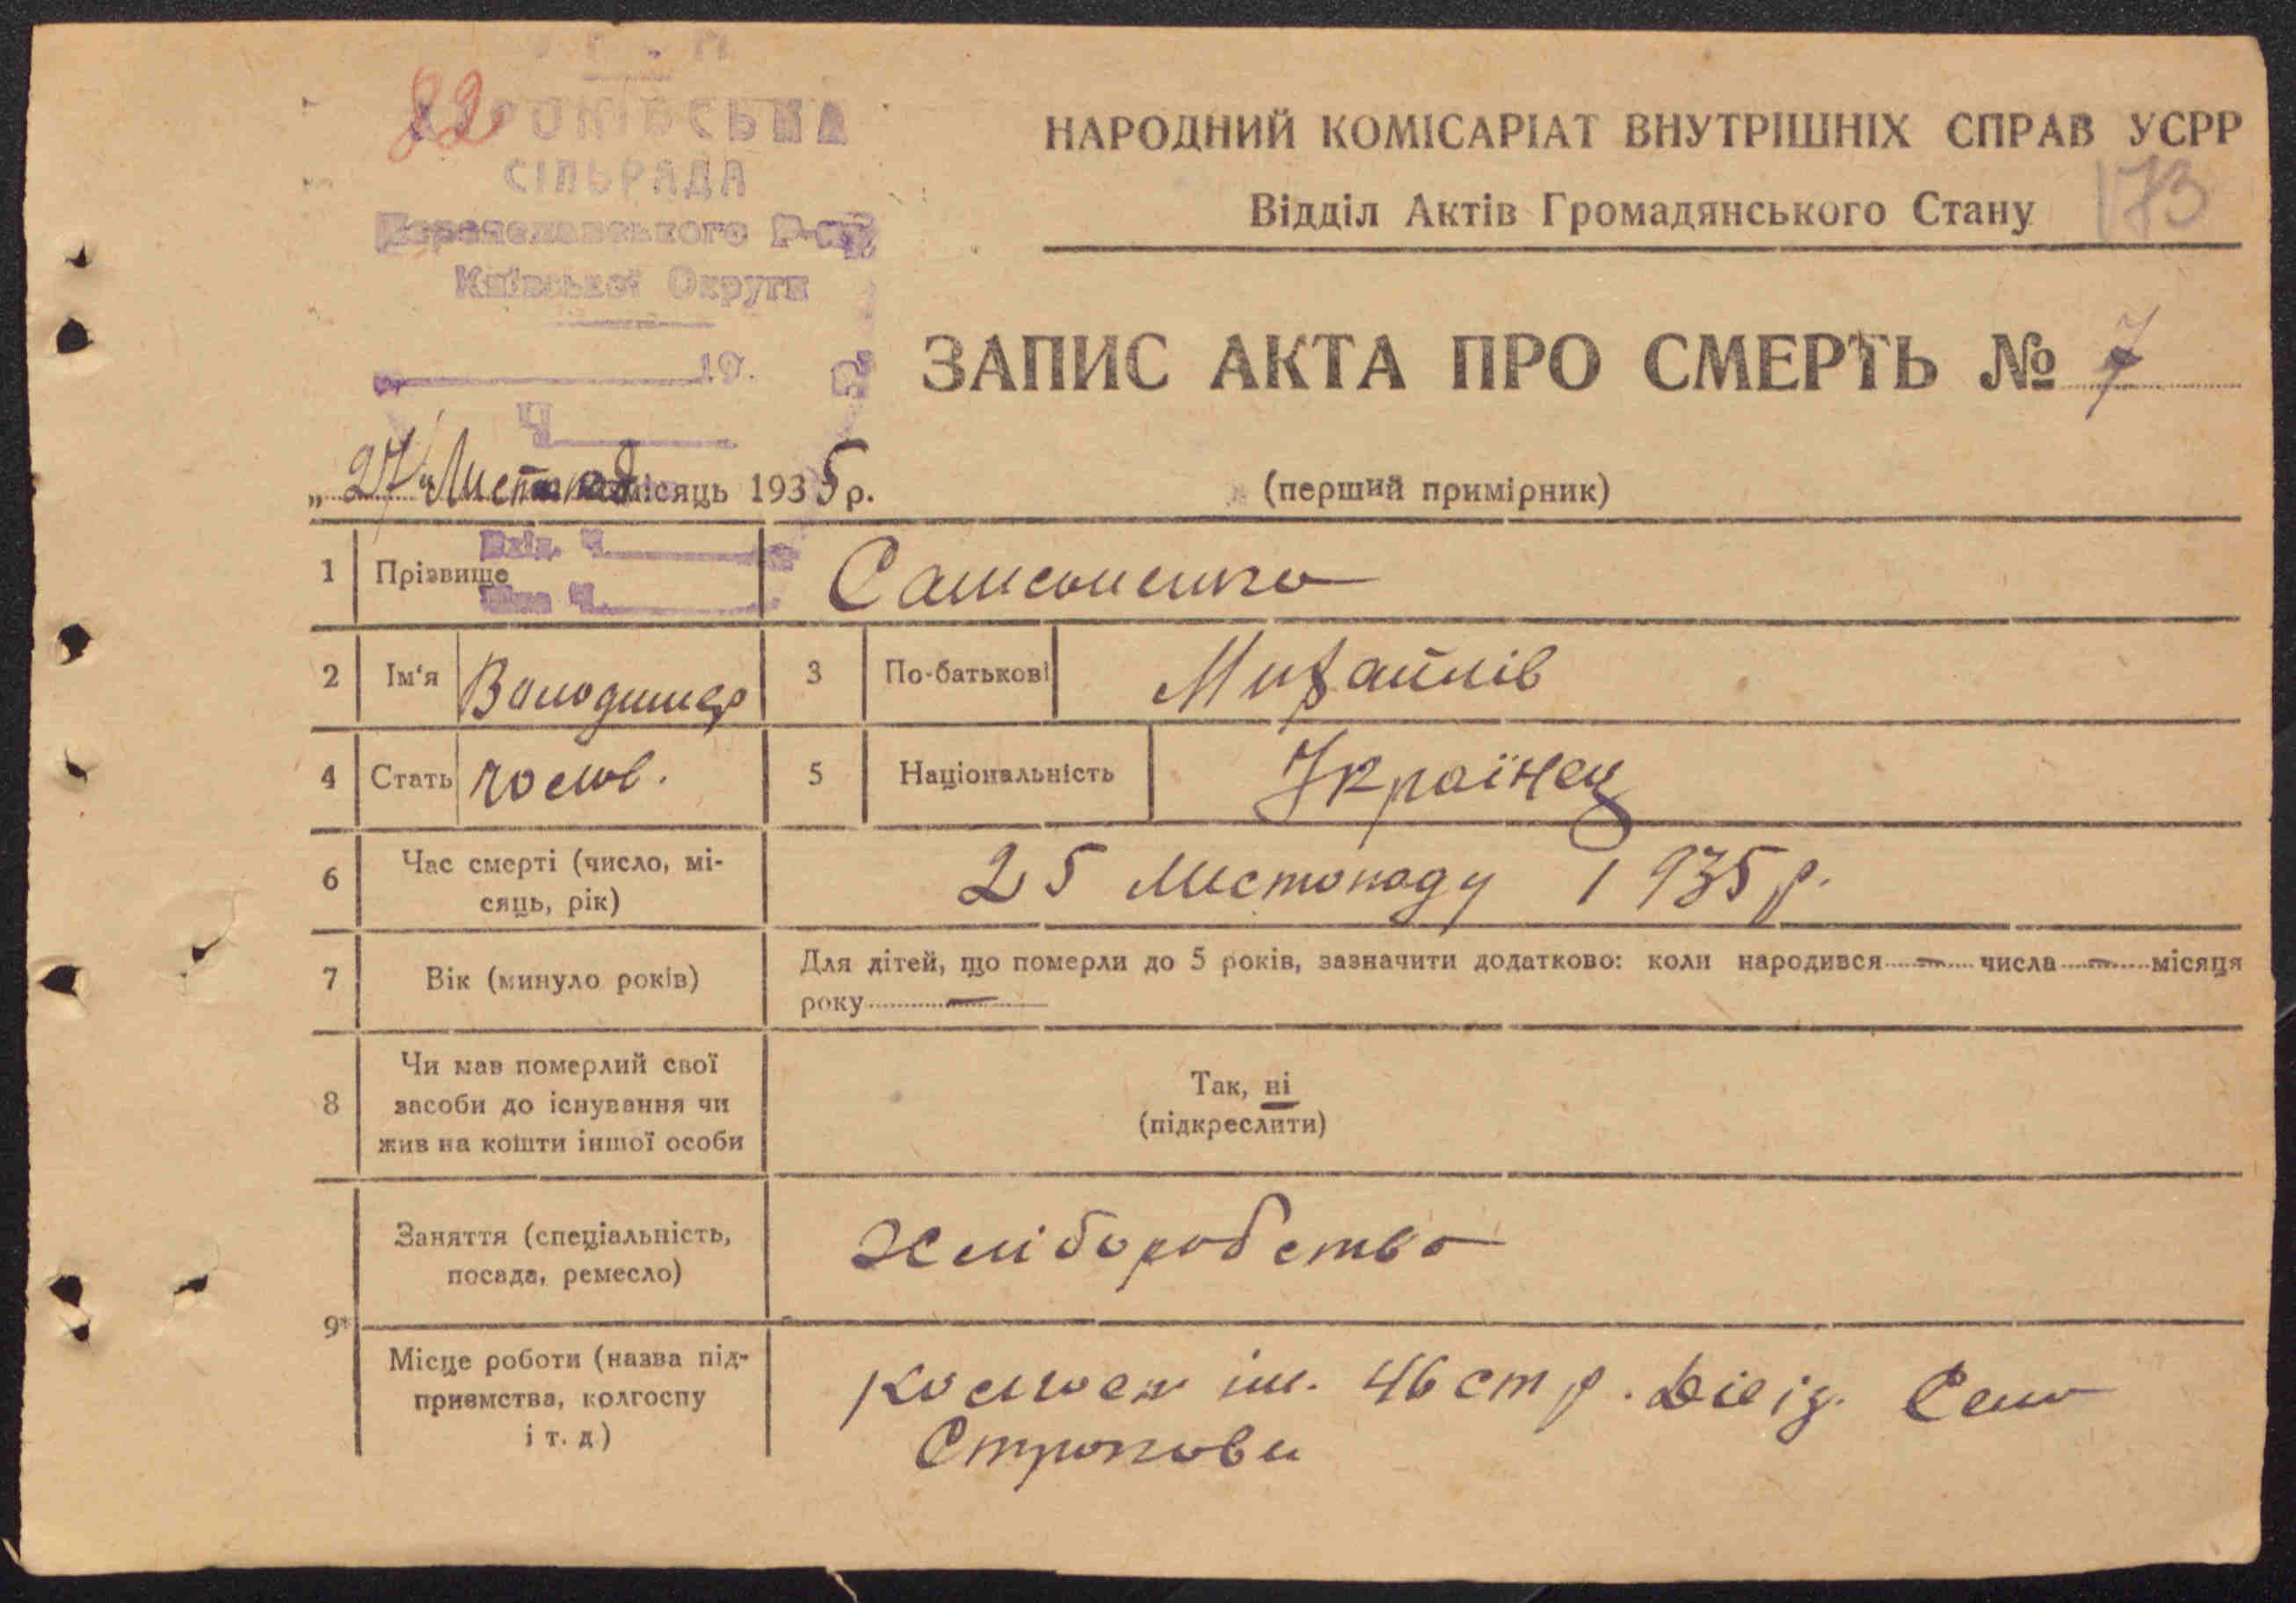 82
СІЛЬРАДА
Київської Округи
19 .
Ч
НАРОДНИЙ КОМІСАРІАТ ВНУТРІШНІХ СПРАВ УСРР
Відділ Актів Громадянського Стану
173
ЗАПИС АКТА ПРО СМЕРТЬ № 7
„27“ Листопад місяць 1935 р.
(перший примірник)
1 Прізвище Самсоненко
Вхід. Ч.
Ч.
2 Ім'я Володимер 3 По-батькові Михайлів
4 Стать чолов. 5 Національність Українец
6 Час смерті (число, мі-
сяць, рік) 25 Листопаду 1935 р.
7 Вік (минуло років) Для дітей, що померли до 5 років, зазначити додатково: коли народився — числа — місяця
року —
8 Чи мав померлий свої
засоби до існування чи
жив на кошти іншої особи
Так, ні
(підкреслити)
9* Заняття (спеціальність,
посада, ремесло) Хліборобство
Місце роботи (назва під-
приємства, колгоспу
і т. д) ім. Стр. Село
Строкови